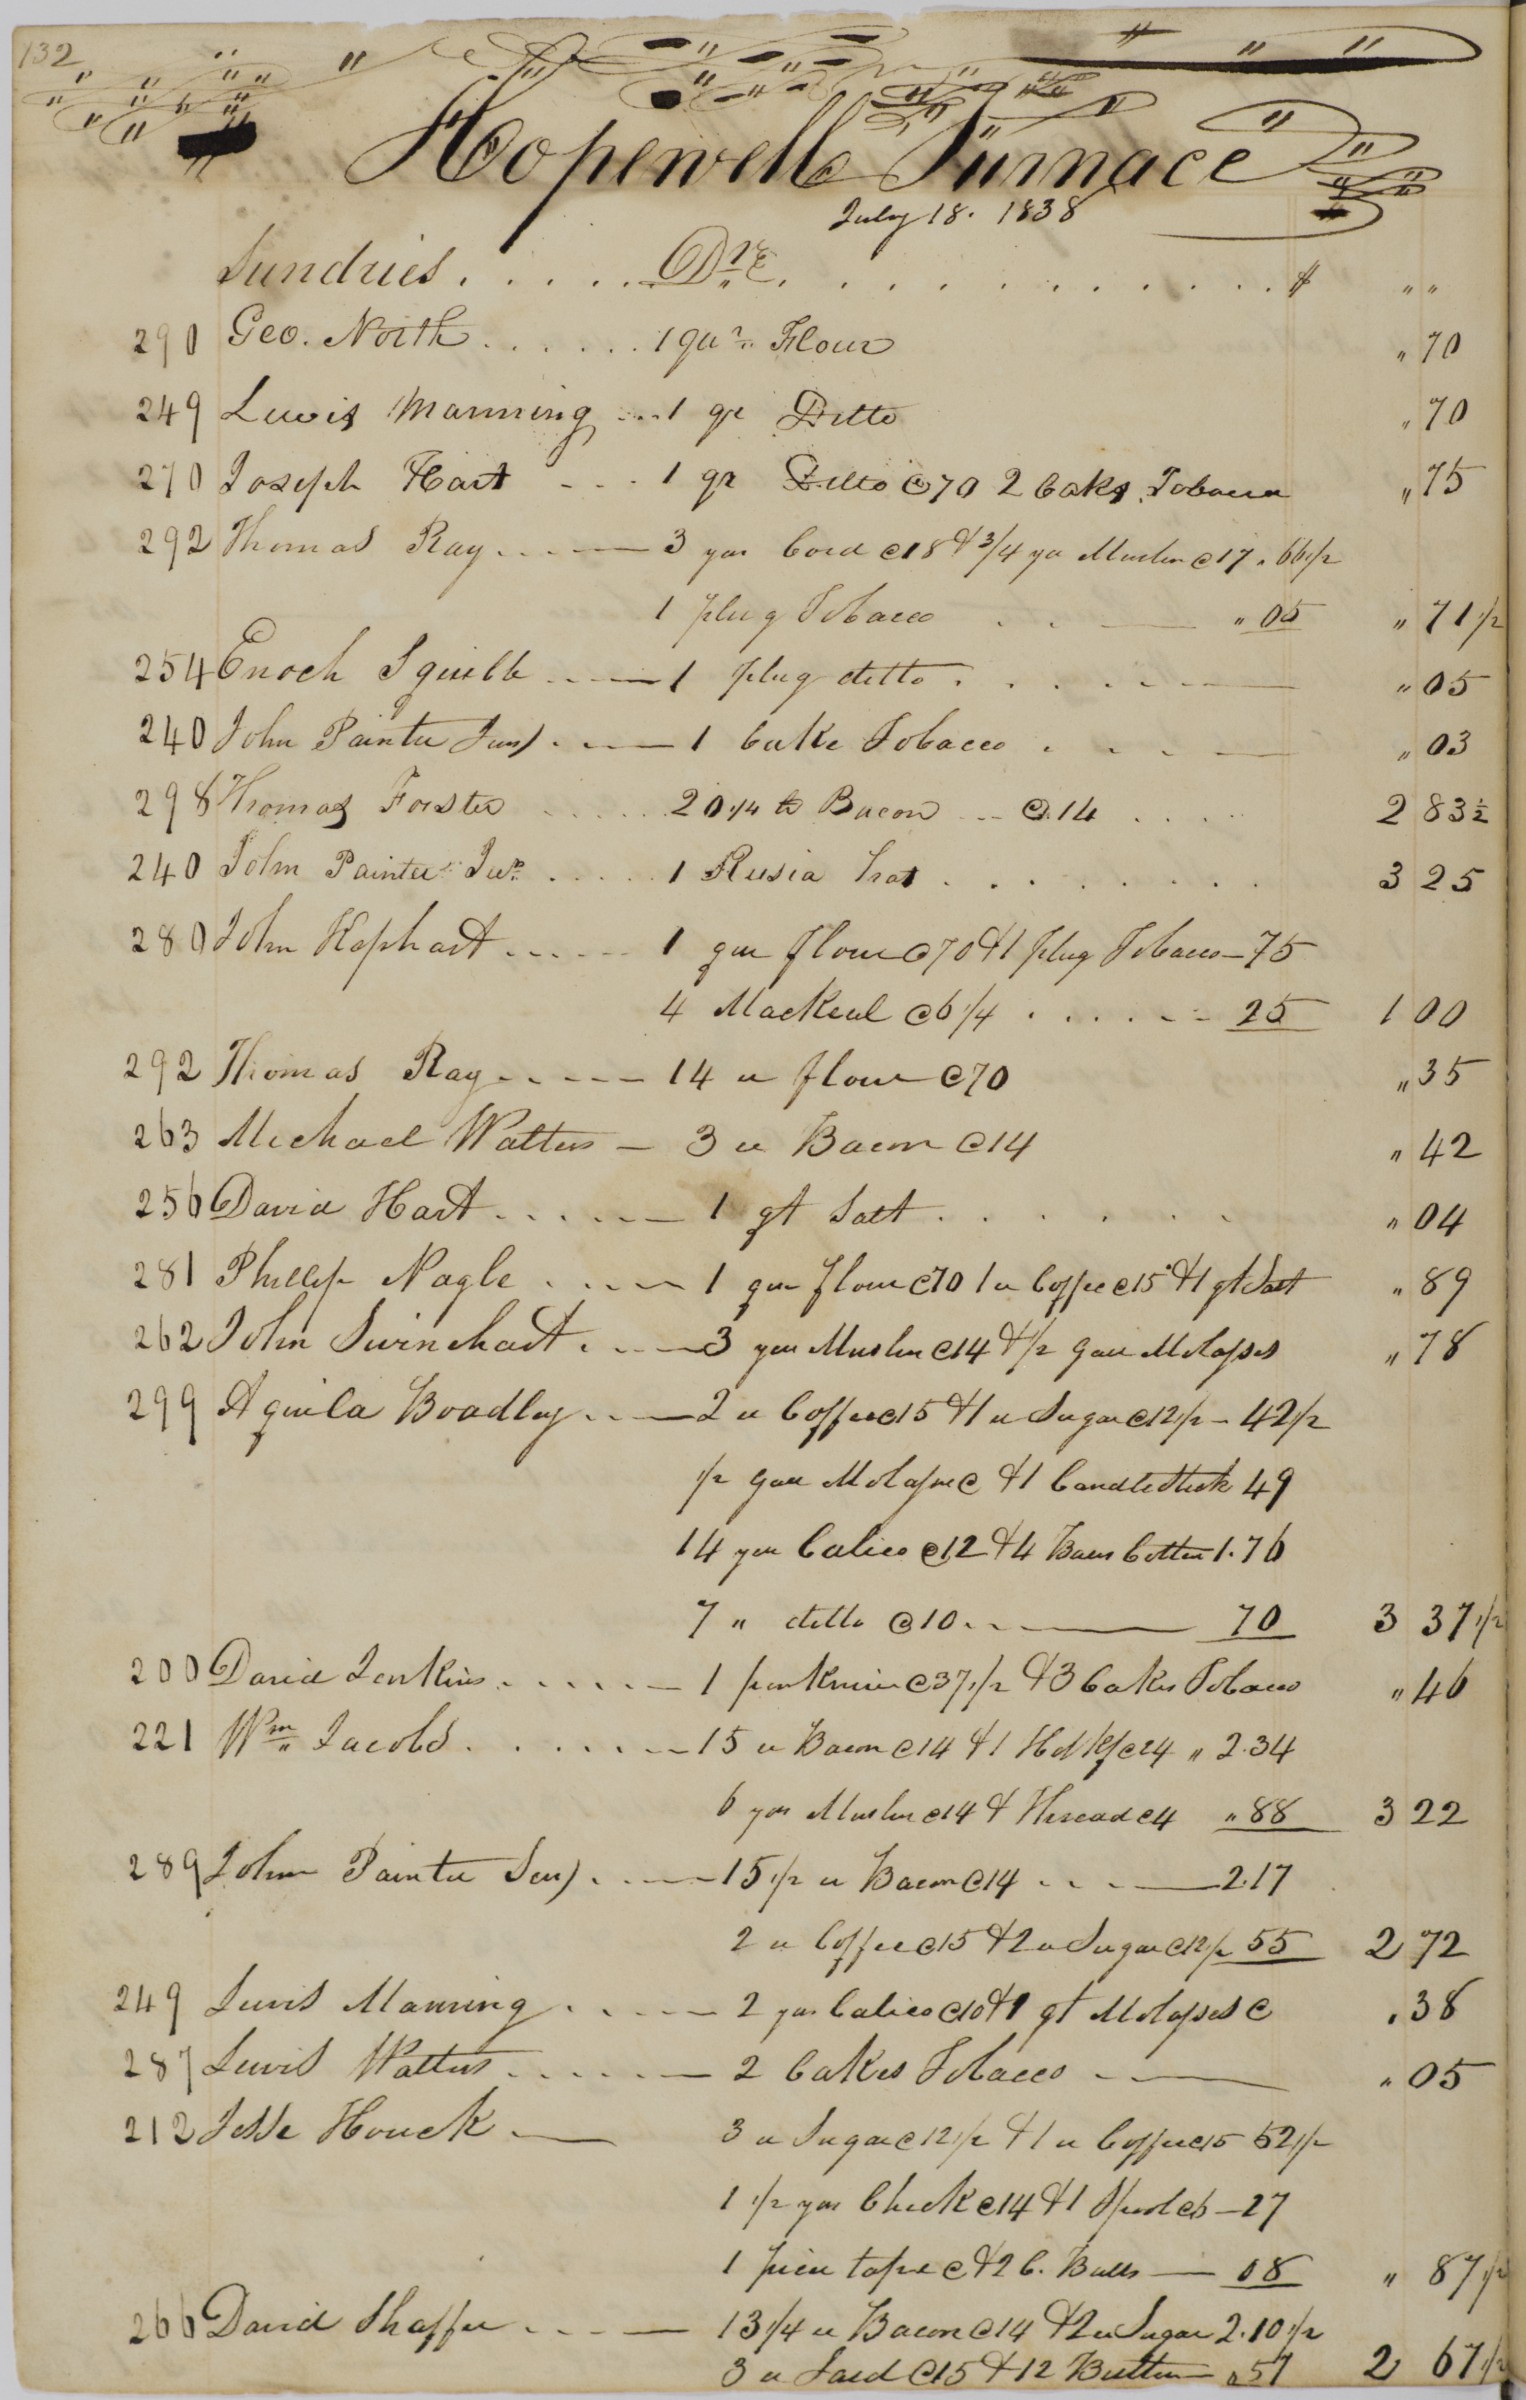 132
Hopewell Furnace
July 18. 1838
Sundries . . . . . Drs. . . . . . . . . . . . $ " "
290 Geo. North . . . . . . 1 qur. Flour " 70
249 Lewis Manning ... 1 qr Ditto " 70
270 Joseph Hart - - . 1 qr Ditto @70 2 Caks Tobacco " 75
292 Thomas Ray . . - — 3 yds Cord @18 & 3/4 yd Muslin @17 " 66 1/2
1 plug Tobacco . . — " 05 " 71 1/2
254 Enoch Squibb . . — 1 plug ditto . . . . . — " 05
240 John Painter Junr . . — 1 Cake Tobacco . . . . — " 03
298 Thomas Forster . . . . . 20 1/4 lb Bacon . . @ 14 . . . . 2 83 1/2
240 John Painter Jur. . . . . . 1 Rusia Hat . . . . . . . . 3 25
280 John Kephart . . . . - 1 qur flour @70 & 1 plug Tobacco — 75
4 Mackeral @ 6 1/4 . . . . . . 25 1 00
292 Thomas Ray . . - - - 14 " flour @70 " 35
263 Michael Watters — 3 " Bacon @14 " 42
256 David Hart . . . . . — 1 qt Salt . . . . . . " 04
281 Phillip Nagle . . . . - 1 qur flour @70 1 " Coffee @15 & 1 qt Salt " 89
262 John Swinehart . . — 3 yds Muslin @14 & 1/2 Gall Molasses " 78
299 Aquila Boadley . . — 2 " Coffee @15 & 1 " Sugar @12 1/2 — 42 1/2
1/2 Gall Molasses @ & 1 Candlestick 49
14 yds Calico @12 & 4 Balls Cotton 1.76
7 " ditto @10 . . — 70 3 37 1/2
200 David Jenkins . . . . . — 1 penknive @37 1/2 & 3 Cakes Tobacco " 46
221 Wm. Jacobs . . . . . . — 15 " Bacon @14 & 1 Hdkf @24 " 2.34
6 yds Muslin @14 & Thread @4 " 88 3 22
289 John Painter Senr . . — 15 1/2 " Bacon @14 . . . — 2.17
2 " Coffee @15 & 2 " Sugar @12 1/2 55 2 72
249 Lewis Manning . . . . — 2 yds Calico @10 & 1 qt Molasses @ " 38
287 Lewis Watters . . . . . — 2 Cakes Tobacco - — " 05
212 Jesse Houck . — 3 " Sugar @12 1/2 & 1 " Coffee @15 52 1/2
1 1/2 yds Check @14 & 1 Spool @6 — 27
1 piece tape @ & 2 C. Balls — 08 " 87 1/2
266 David Shaffer . . . — 13 1/4 " Bacon @14 & 2 " Sugar 2.10 1/2
3 " Lard @15 & 12 Button — " 57 2 67 1/2